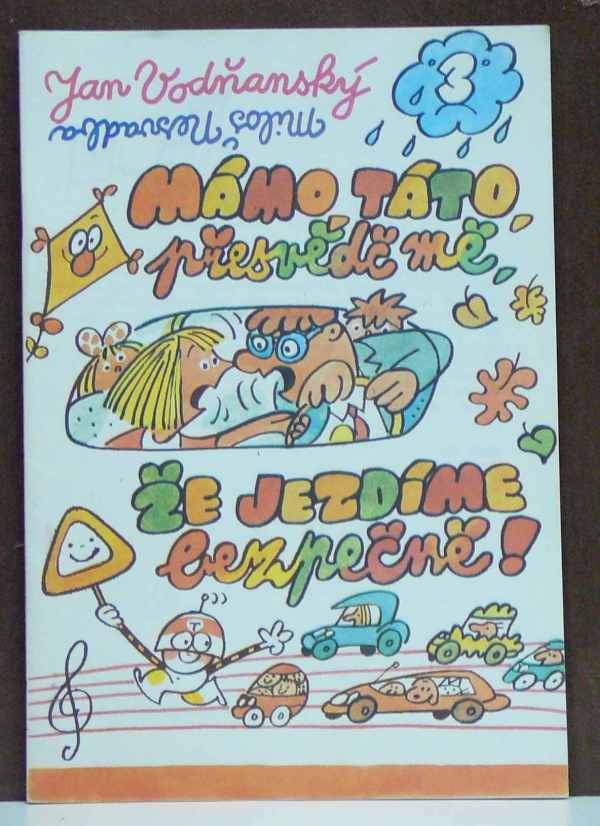 Jan Vodňanský
3
Miloš Nesvadba
MÁMO, TÁTO,
přesvědč mě,
ŽE JEZDÍME
bezpečně!
T